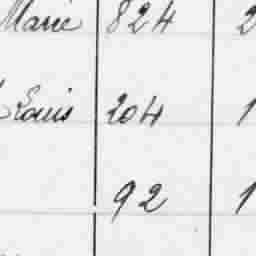 Marie 824 2
Louis 204 1
92 1